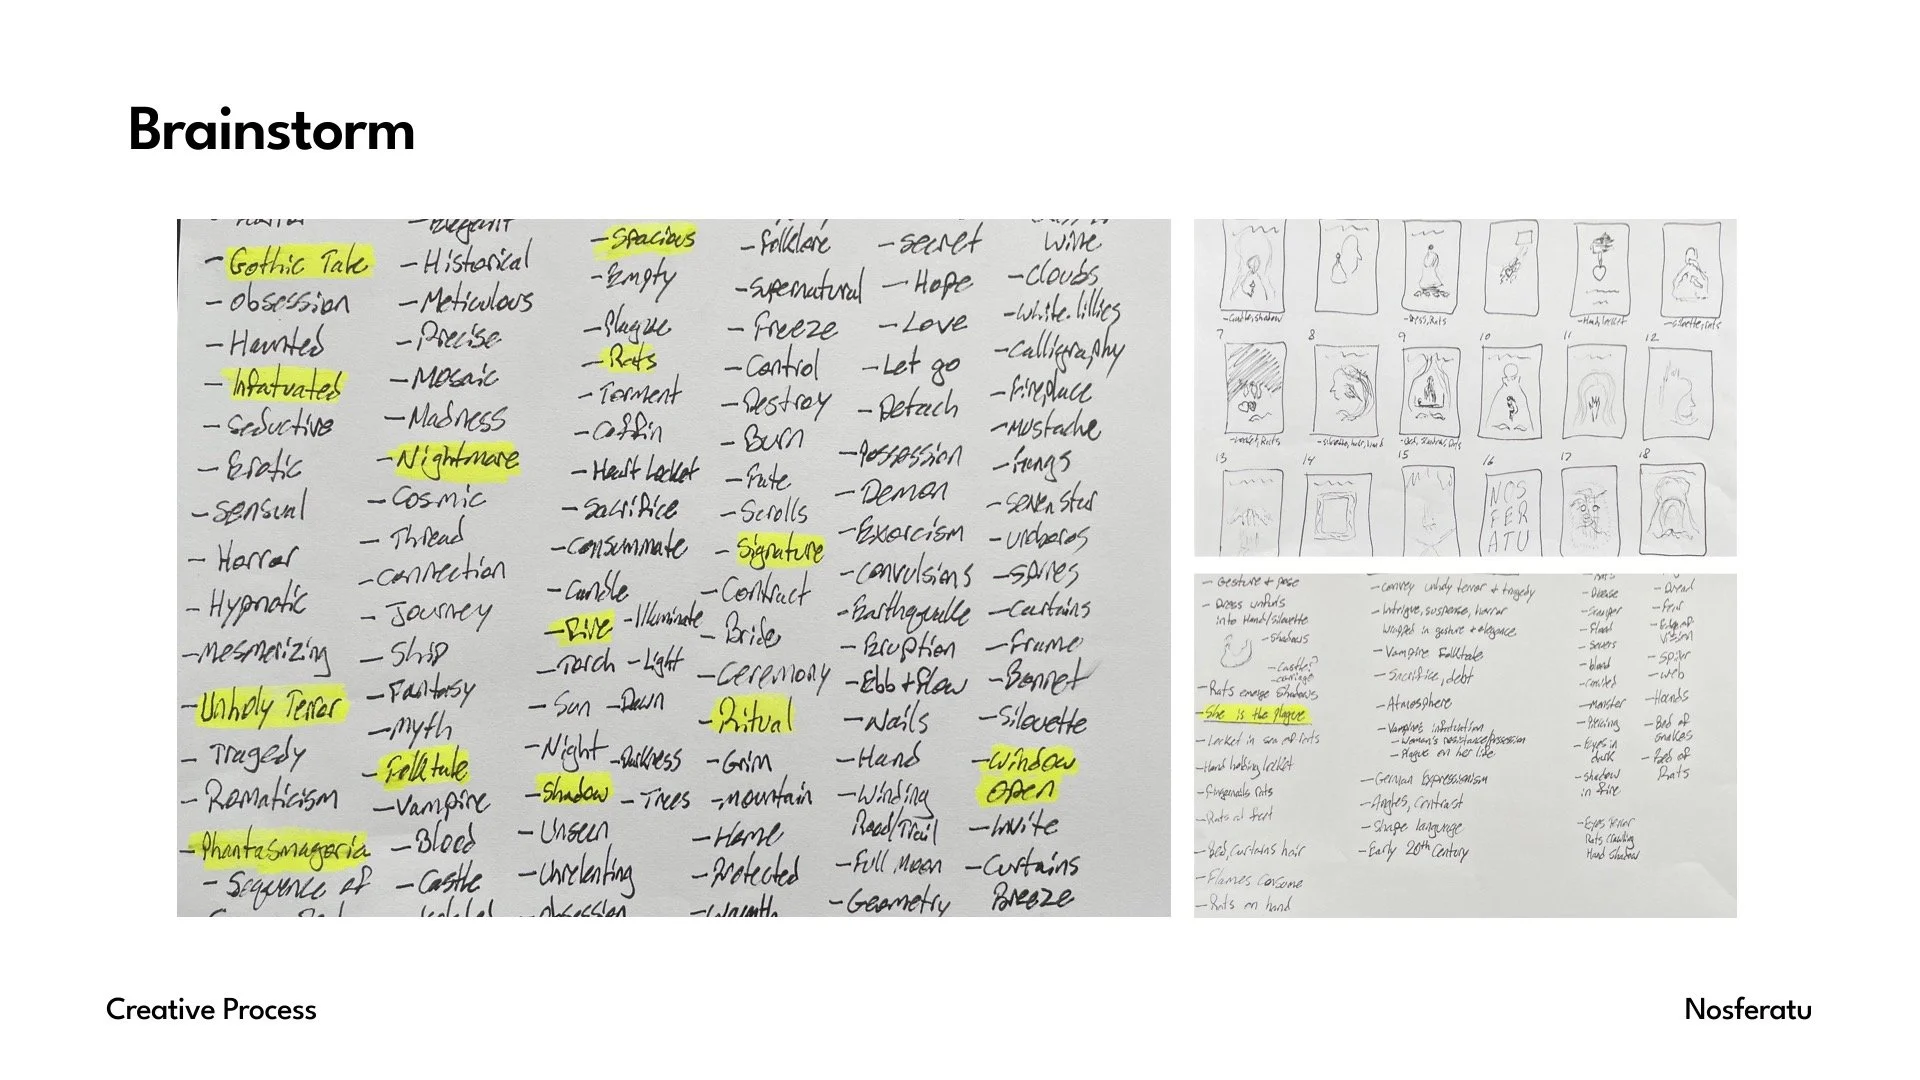 Brainstorm
- Gothic Tale
- Obsession
- Haunted
- Infatuated
- Seductive
- Erotic
- Sensual
- Horror
- Hypnotic
- Mesmerizing
- Unholy Terror
- Tragedy
- Romaticism
- Phantasmagoria
- Sequence of
- Elegant
- Historical
- Meticulous
- Precise
- Mosaic
- Madness
- Nightmare
- Cosmic
- Thread
- Connection
- Journey
- Ship
- Fantasy
- Myth
- Folktale
- Vampire
- Blood
- Castle
- Spacious
- Empty
- Plague
- Rats
- Torment
- Coffin
- Heart Locket
- Sacrifice
- Consummate
- Candle
- Fire - Illuminate
- Torch - Light
- Sun - Dawn
- Night - Darkness
- Shadow - Trees
- Unseen
- Unrelenting
- Obsession
- Folklore
- Supernatural
- Freeze
- Control
- Destroy
- Burn
- Fate
- Scrolls
- Signature
- Contract
- Bride
- Ceremony
- Ritual
- Grim
- Mountain
- Home
- Protected
- Warmth
- Secret
- Hope
- Love
- Let go
- Detach
- Possession
- Demon
- Exorcism
- Convulsions
- Earthquake
- Eruption
- Ebb + Flow
- Nails
- Hand
- Winding
Road/Trail
- Full Moon
- Geometry
Wine
- Clouds
- White lillies
- Calligraphy
- Fireplace
- Mustache
- Fangs
- Seven Star
- Uroboros
- Spires
- Curtains
- Frame
- Bonnet
- Silouette
- Window
Open
- Invite
- Curtains
Breeze
- Candle, shadow
- Dress, Rats
- Hand, locket
- Silouette, rats
7 8 9 10 11 12
- Locket, Rats
- Silouette, hair, hand
13 14 15 16 17 18
NOS
FER
ATU
- Gesture + pose
- Dress unfurls
into Hand/silouette
- Shadows
- Castle?
- carriage
- Rats emerge shadows
- She is the plague
- Locket in sea of rats
- Hand holding locket
- Fingernails rats
- Rats at feet
- Bed, curtains hair
- Flames consome
- Rats on hand
- Convey unholy terror + tragedy
- Intrigue, suspense, horror
Wrapped in gesture + elegance
- Vampire Folktale
- Sacrifice, debt
- Atmosphere
- Vampire's infatuation
- Woman's resistance/possession
- Plague on her life
- German Expressionism
- Angles, Contrast
- Shape language
- Early 20th Century
- Disease
- Scamper
- Flood
- Sewers
- blood
- monster
- Piercing
- Eyes in
dark
- Shadow
in fire
- Eyes terror
Rats crawling
Hand Shadow
- Dread
- Fear
- Edge of
vision
- Spider
- web
- Hounds
- Bed of
snakes
- Bed of
Rats
Creative Process
Nosferatu